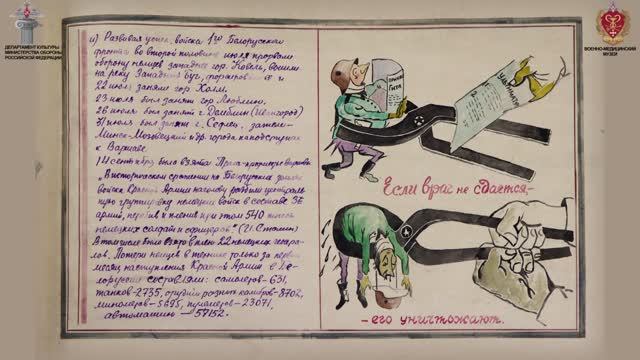 ДЕПАРТАМЕНТ КУЛЬТУРЫ
МИНИСТЕРСТВА ОБОРОНЫ
РОССИЙСКОЙ ФЕДЕРАЦИИ
ВОЕННО-МЕДИЦИНСКИЙ
МУЗЕЙ
и) Развивая успех, войска 1го Белорусского
фронта во второй половине июля прорвали
оборону немцев западнее гор. Ковель, вышли
на реку Западный Буг, форсировали её и
22 июля заняли гор. Холм.
23 июля был занят гор. Люблин.
26 июля был занят г. Демблин (Ивангород)
31 июля был занят г. Седлец, заняли-
Минск-Мазовецкий и др. города на подступах
к Варшаве.
14 сентября была взята Прага-предместье Варшавы.
"В историческом сражении на Белорусских полях
войска Красной Армии наголову разбили централь-
ную группировку немецких войск в составе 3х
армий, перебив и пленив при этом 540 тысяч
немецких солдат и офицеров" (И. Сталин)
В том числе было взято в плен 22 немецких генера-
лов. Потери немцев в технике только за первый
месяц наступления Красной Армии в Бе-
лоруссии составляли: самолетов-631,
танков-2735, орудий разных калибров-8702,
минометов-5695, пулеметов-23071,
автомашин —57152.
ПРИКАЗ
УЛЬТИМАТУМ
Если враг не сдается-
-его уничтожают.